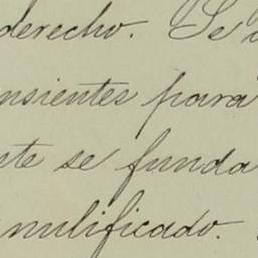 derecho. Se
nsientes para
nte se funda
nulificado.